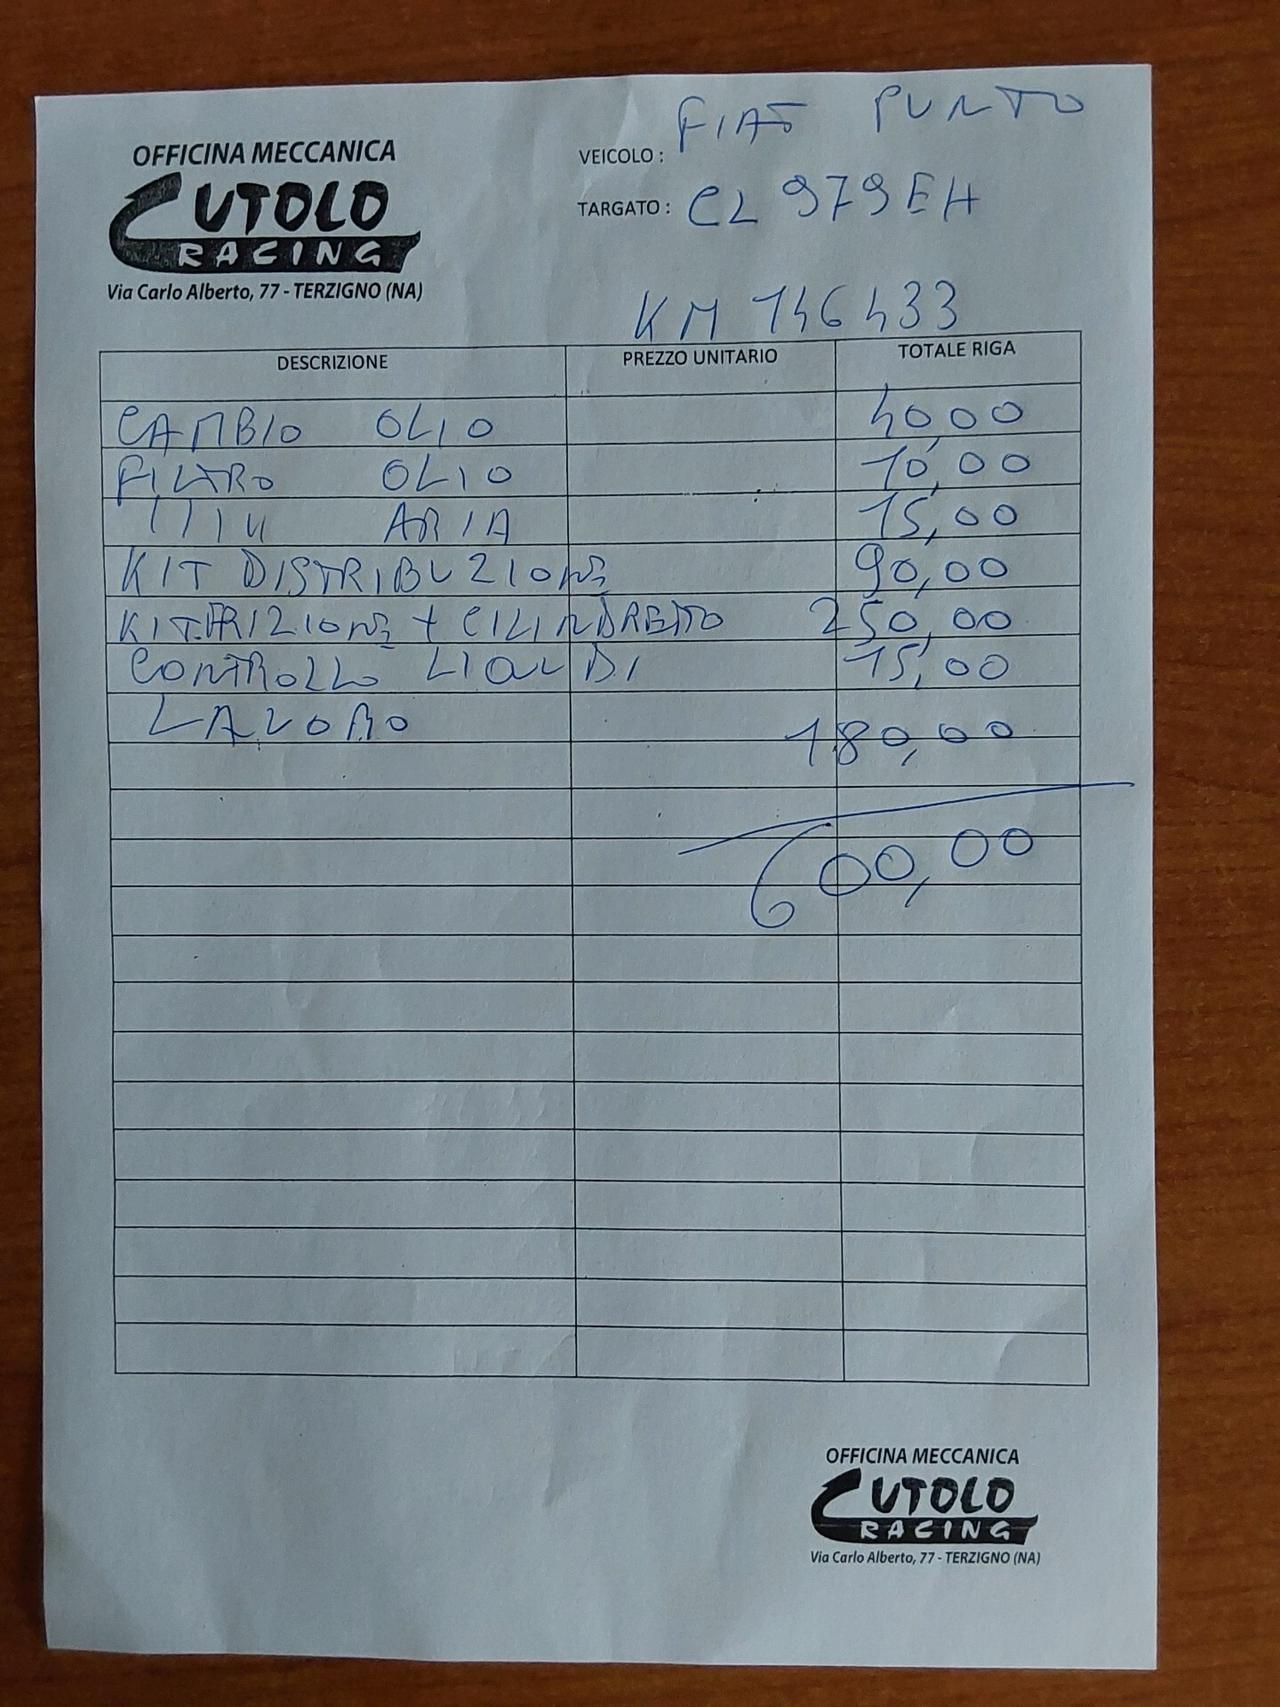 OFFICINA MECCANICA
CUTOLO
RACING
Via Carlo Alberto, 77 - TERZIGNO (NA)
VEICOLO : FIAT PUNTO
TARGATO : CL 979EH
KM 146433
DESCRIZIONE PREZZO UNITARIO TOTALE RIGA
CAMBIO OLIO 4000
FILTRO OLIO 10,00
//// ARIA 15,00
KIT DISTRIBUZIONE 90,00
KIT FRIZIONE + CILINDRETTO 250,00
CONTROLLO LIQUIDI 15,00
LAVORO 180,00
600,00
OFFICINA MECCANICA
CUTOLO
RACING
Via Carlo Alberto, 77 - TERZIGNO (NA)